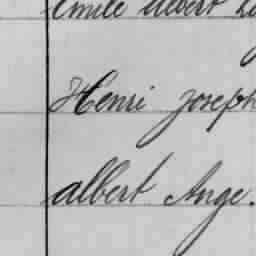 Emile Albert
Henri Joseph
Albert Ange.